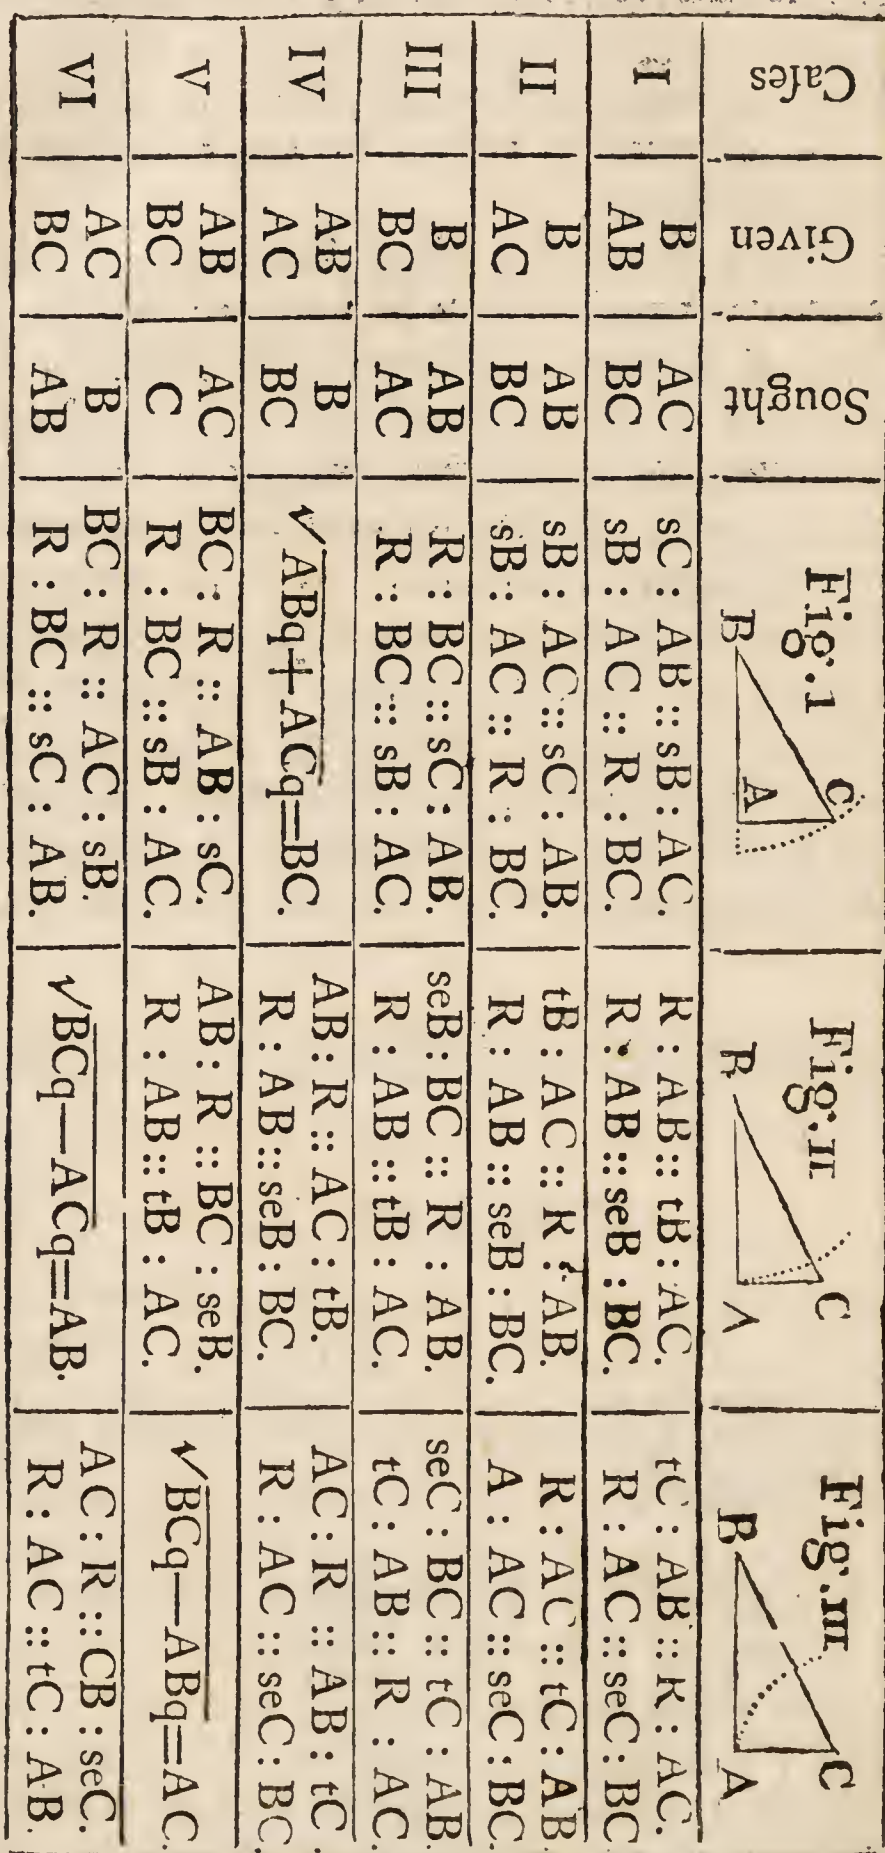 Cases
Given
Sought
Fig.1
B
A
C
Fig.II
B
C
A
Fig.III
B
C
A
I
B
AB
AC
BC
sC : AB :: sB : AC.
sB : AC :: R : BC.
R : AB :: tB : AC.
R : AB :: seB : BC.
tC : AB :: R : AC.
R : AC :: seC : BC
II
B
AC
AB
BC
sB : AC :: sC : AB.
sB : AC :: R : BC.
tB : AC :: R : AB.
R : AB :: seB : BC.
R : AC :: tC : AB.
A : AC :: seC : BC.
III
B
BC
AB
AC
R : BC :: sC : AB.
R : BC :: sB : AC.
seB : BC :: R : AB.
R : AB :: tB : AC.
seC : BC :: tC : AB.
tC : AB :: R : AC.
IV
AB
AC
B
BC
√ABq+ACq=BC.
AB : R :: AC : tB.
R : AB :: seB : BC.
AC : R :: AB : tC.
R : AC :: seC : BC.
V
AB
BC
AC
C
BC : R :: AB : sC.
R : BC :: sB : AC.
AB : R :: BC : seB.
R : AB :: tB : AC.
√BCq—ABq=AC.
VI
AC
BC
B
AB
BC : R :: AC : sB.
R : BC :: sC : AB.
√BCq—ACq=AB.
AC : R :: CB : seC.
R : AC :: tC : AB.